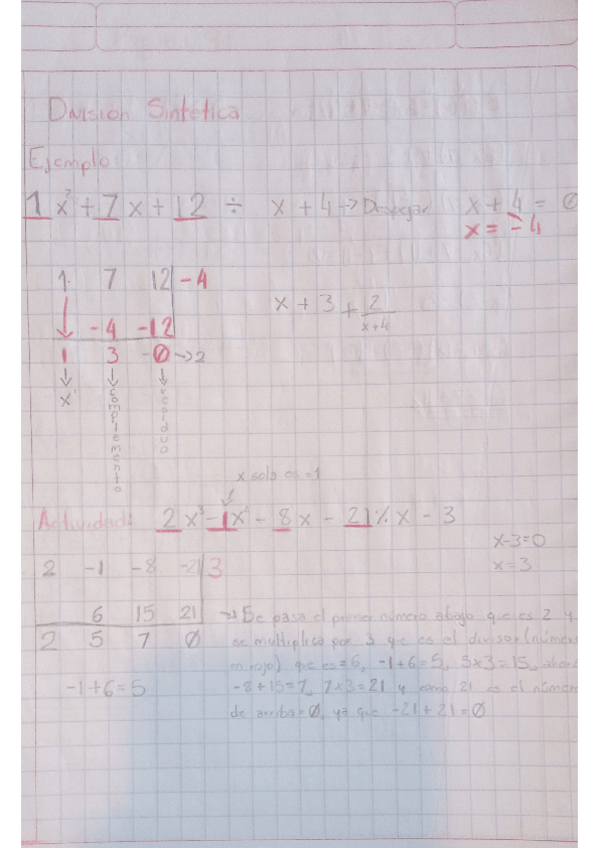 División Sintética
Ejemplo:
1x² + 7x + 12 ÷ x + 4 → Despejar x + 4 = 0
x = -4
1 7 12 -4
x + 3 + 2/x+4
-4 -12
1 3 0 → 2
x complemento residuo
x solo es = 1
Actividad: 2x³ - 1x² - 8x - 21 % x - 3
x-3=0
2 -1 -8 -21 3
x=3
6 15 21 → Se pasa el primer número abajo que es 2 y
2 5 7 0 se multiplica por 3 que es el divisor (número
en rojo) que es = 6, -1+6=5, 5x3=15, ahora
-1+6=5 -8+15=7, 7x3=21 y como 21 es el número
de arriba = 0, ya que -21+21=0